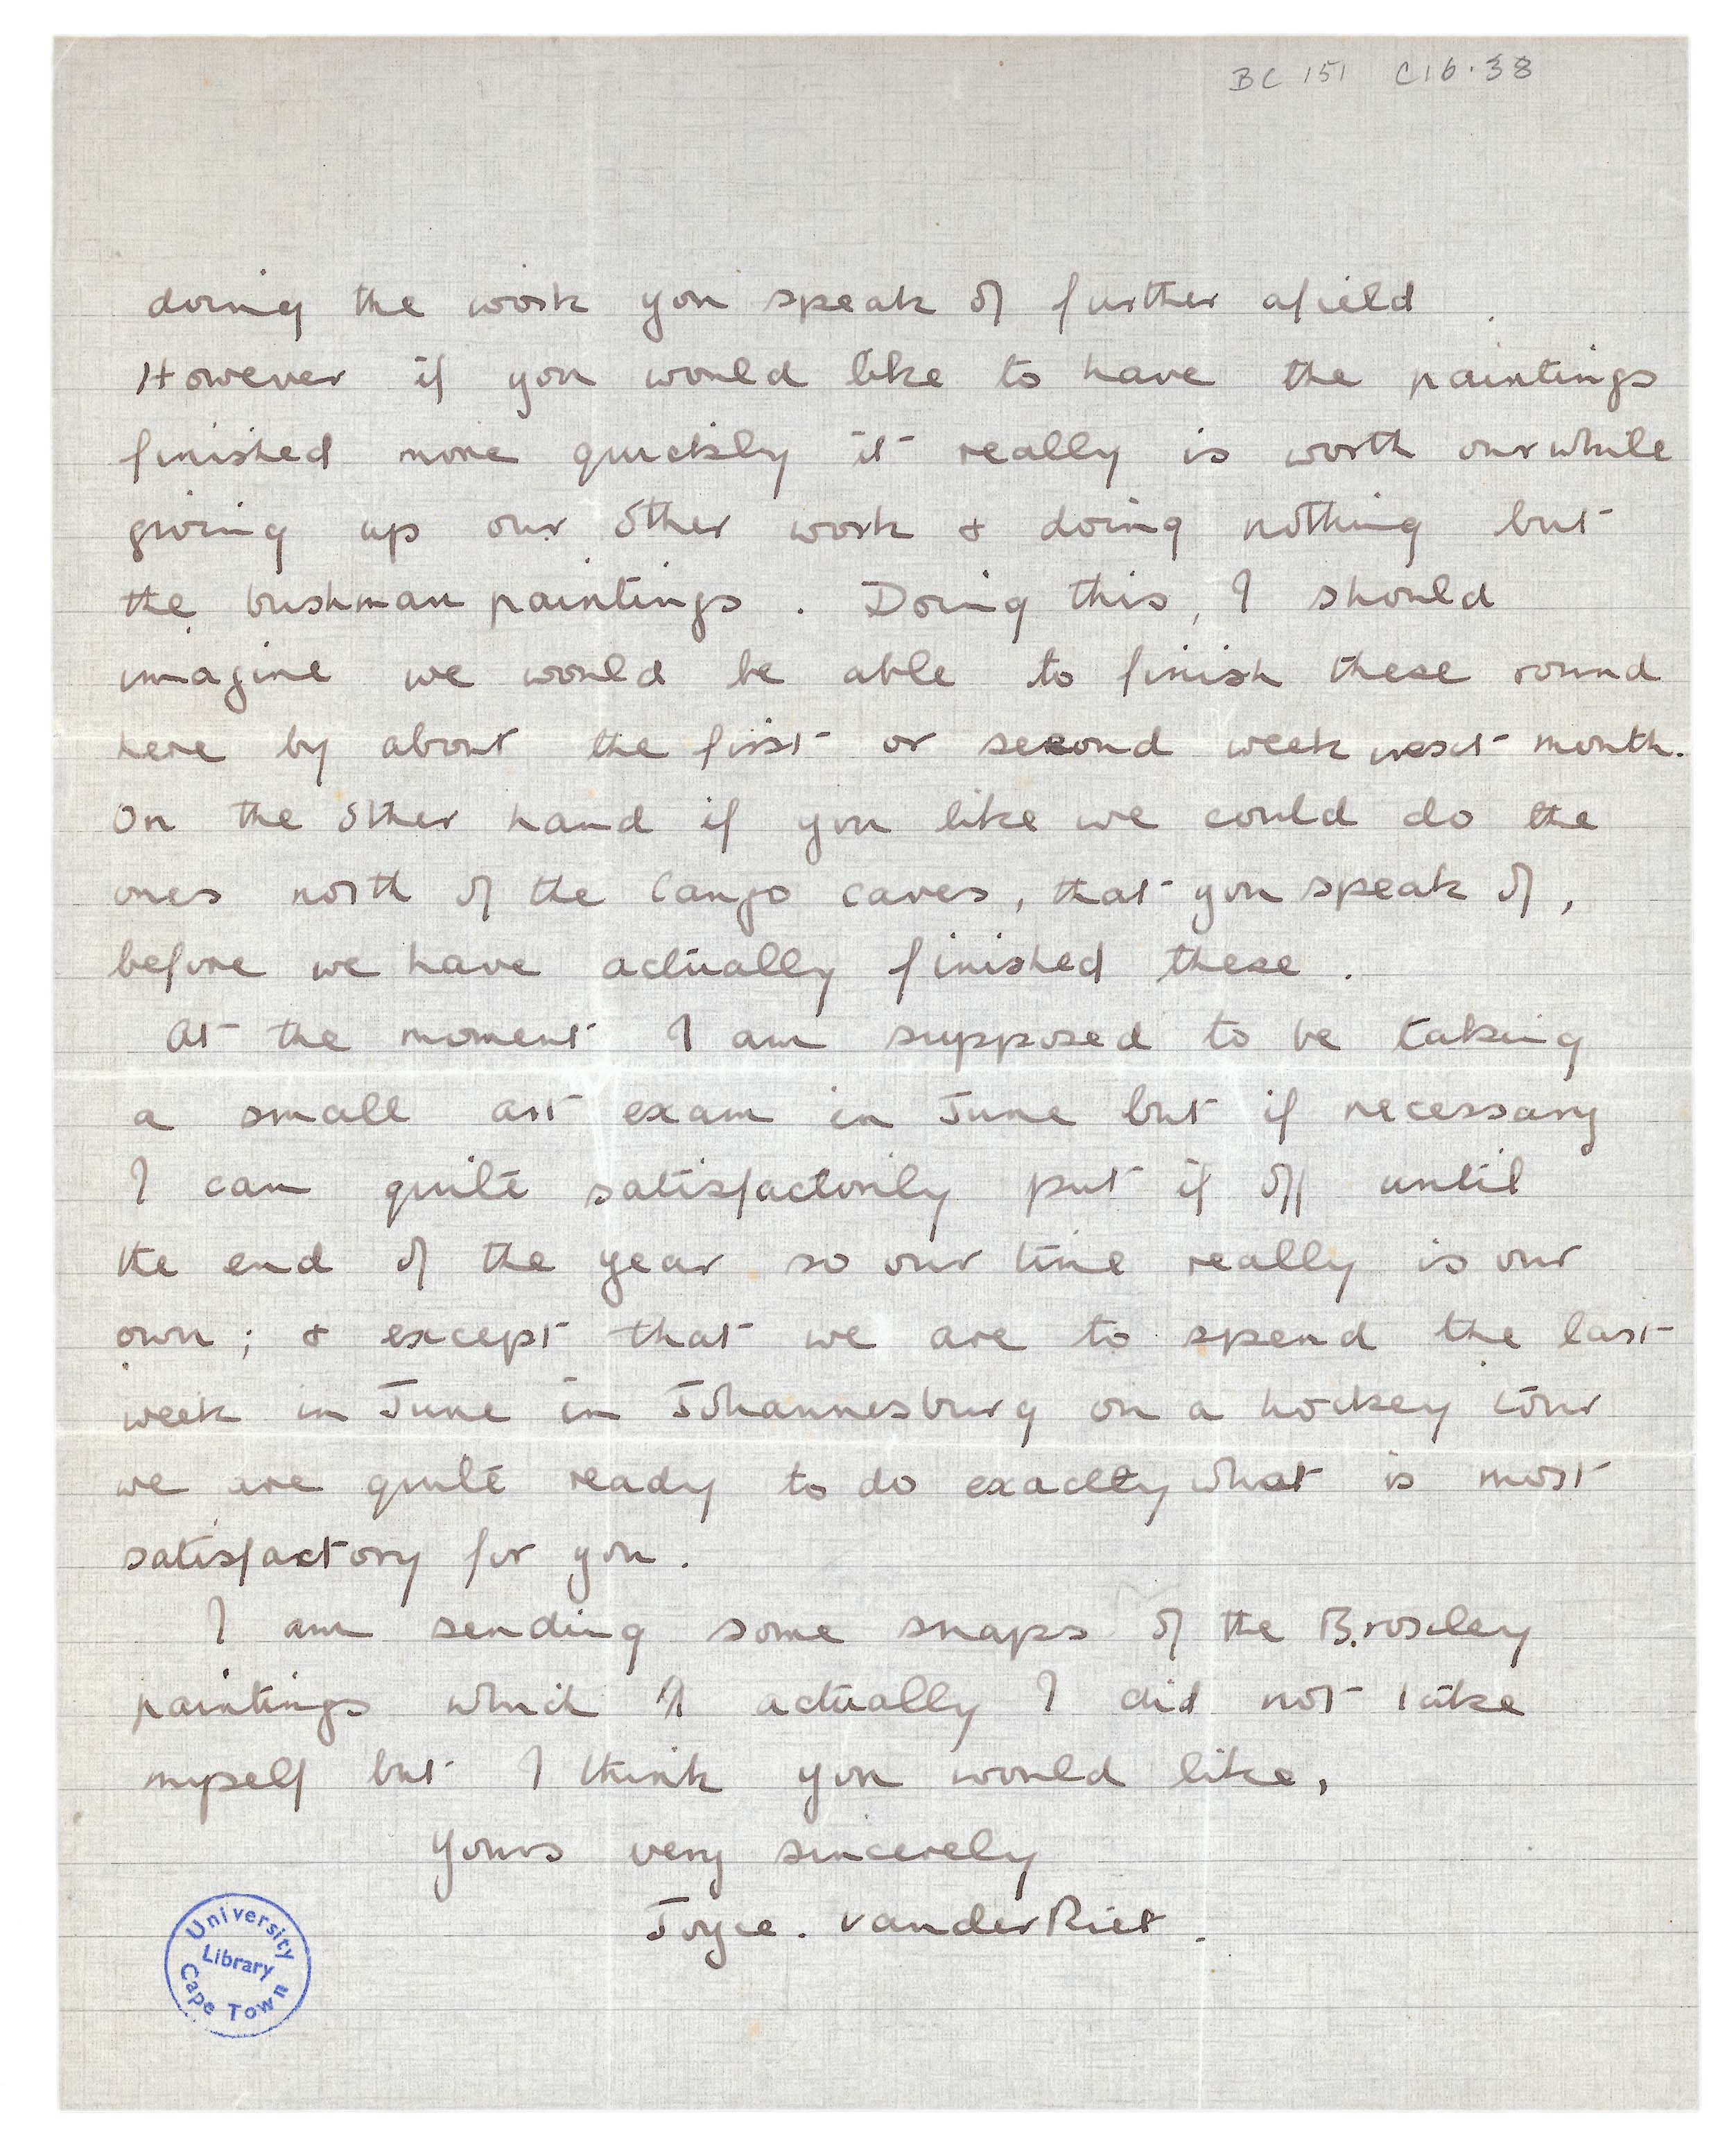 BC 151 C16.38
doing the work you speak of further afield.
However if you would like to have the paintings
finished more quickly it really is worth our while
giving up our other work & doing nothing but
the bushman paintings. Doing this, I should
imagine we would be able to finish these round
here by about the first or second week next month.
On the other hand if you like we could do the
ones north of the Cango caves, that you speak of,
before we have actually finished these.
At the moment I am supposed to be taking
a small art exam in June but if necessary
I can quite satisfactorily put if off until
the end of the year so our time really is our
own; & except that we are to spend the last
week in June in Johannesburg on a hockey tour
we are quite ready to do exactly what is most
satisfactory for you.
I am sending some snaps of the
paintings which actually I did not take
myself but I think you would like,
Yours very sincerely
Joyce. vanderRiet.
University
Library
Cape Town